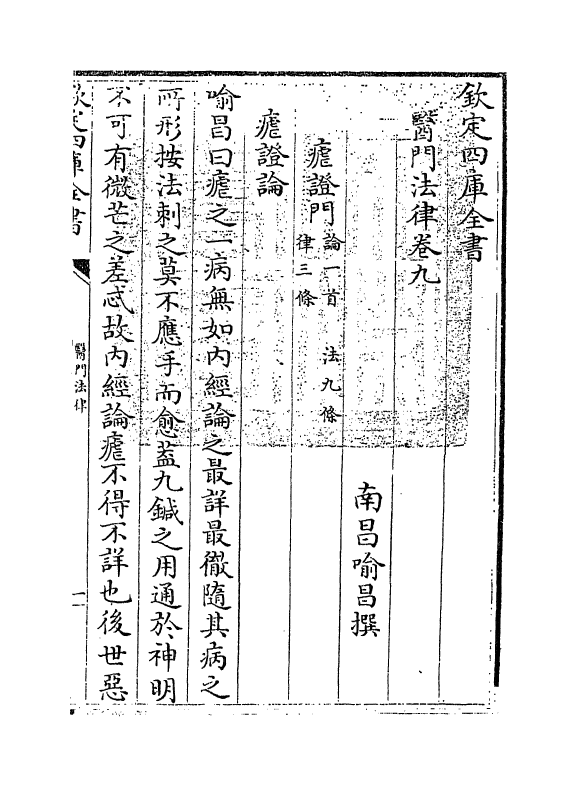 欽定四庫全書
醫門法律卷九
南昌喻昌撰
瘧證門論一首　法九條
律三條
瘧證論
喻昌曰瘧之一病無如內經論之最詳最徹隨其病之
所形按法刺之莫不應手而愈葢九鍼之用通於神明
不可有微芒之差忒故內經論瘧不得不詳也後世惡
欽定四庫全書
醫門法律
一